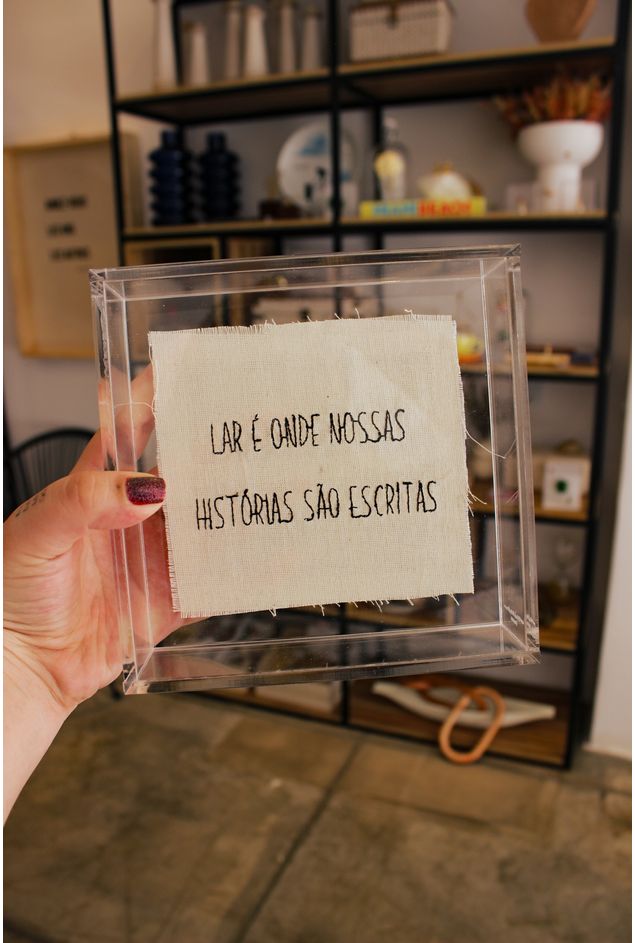 LAR É ONDE NOSSAS
HISTÓRIAS SÃO ESCRITAS